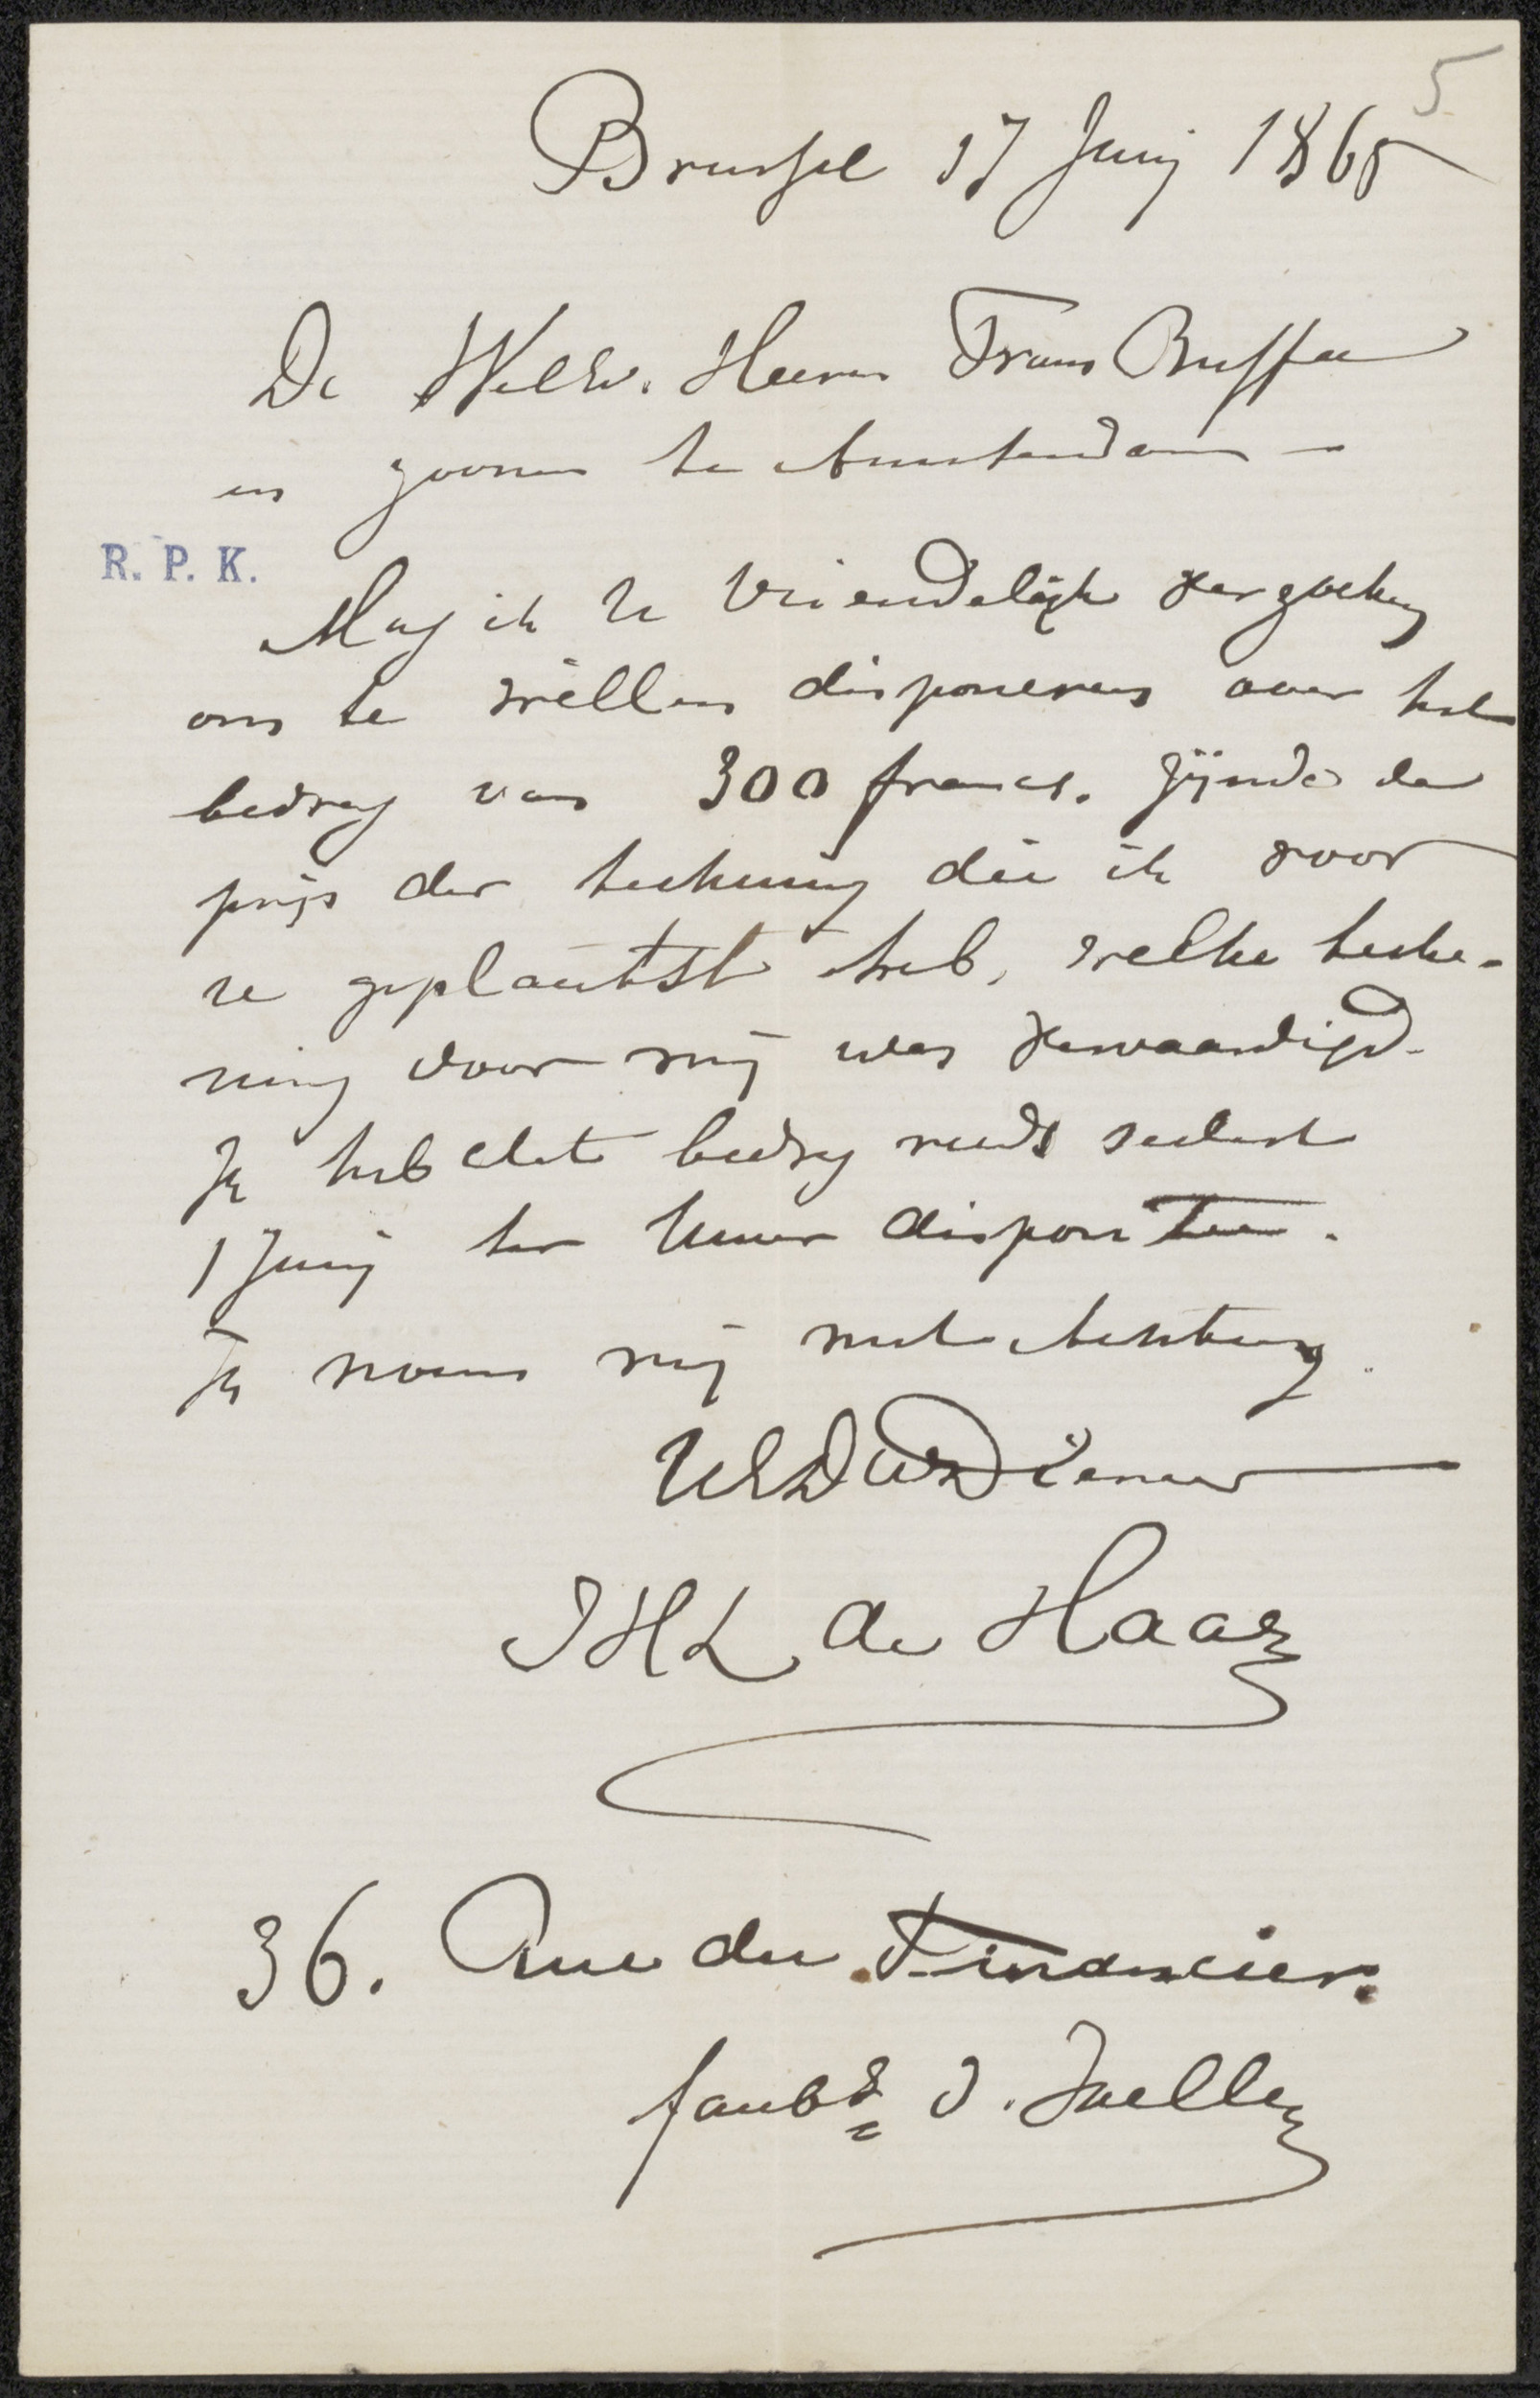 5
Brussel 17 Junij 1865
De WelEw. Heeren Frans Buffa
en zoonen te Amsterdam –
R. P. K.
Mag ik U vriendelijk verzoeken
om te willen disponeren over het
bedrag van 300 francs. zijnde de
prijs der teekening die ik voor
U geplaatst heb, welke teeke-
ning door mij was vervaardigd.
Ik heb dat bedrag reeds sedert
1 Junij ter Uwer dispositie.
Ik noem mij met achting.
UEDWDienaar
JHL de Haas
36. Rue du Financier.
faubg d. Ixelles